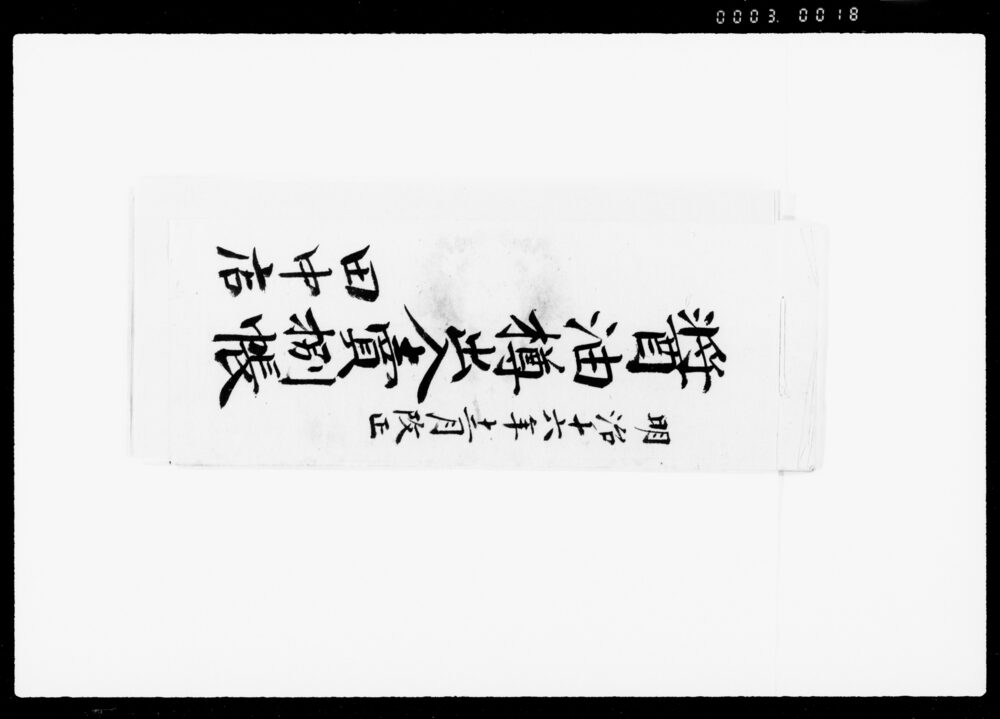 0003. 0018
明治十六年十二月改正
醤油樽出入賣捌帳
田中店